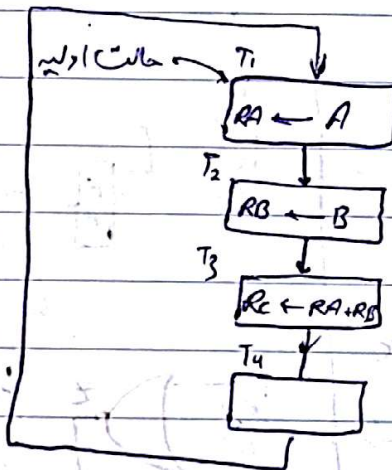 حالت اولیه T1
RA ← A
T2
RB ← B
T3
RC ← RA+RB
T4